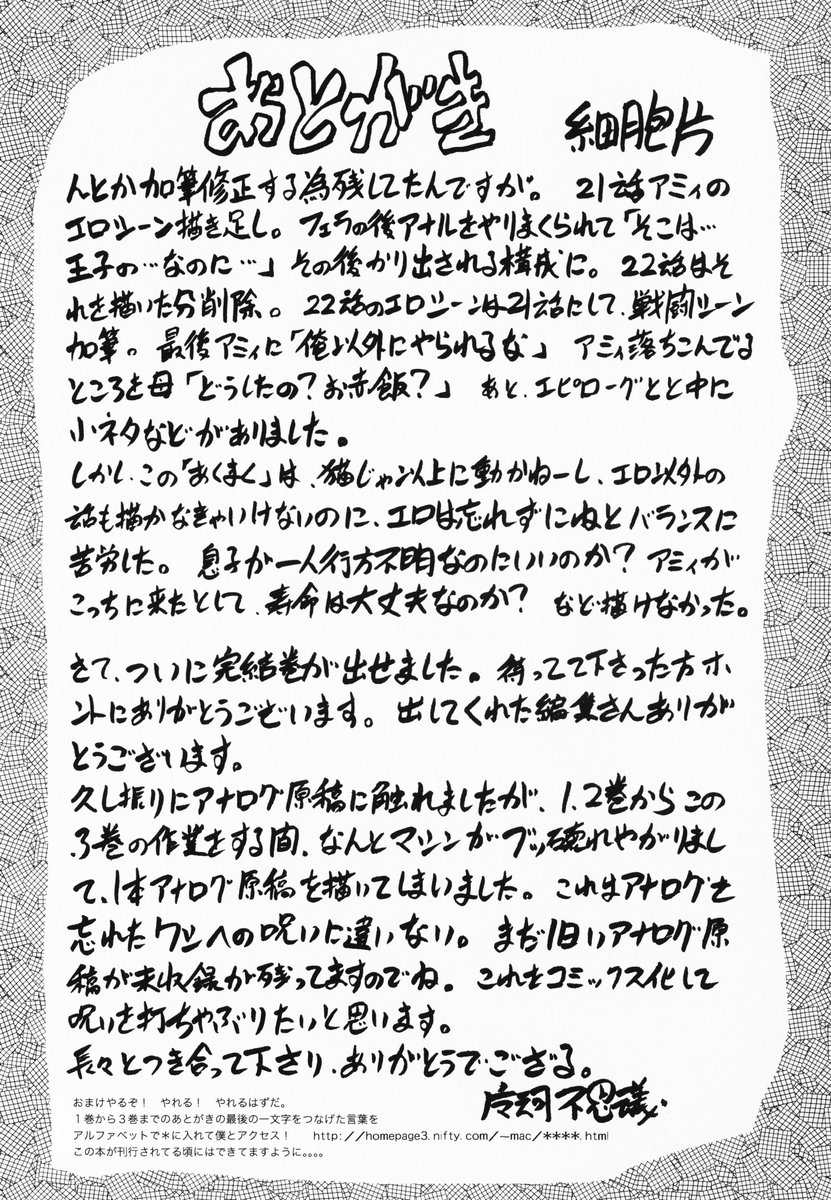 あとがき
細胞片
んとか加筆修正する為残してたんですが。 21話アミィの
エロシーン描き足し。 フェラの後アナルをやりまくられて「そこは…
王子の…なのに…」 その後かり出される構成に。 22話はそ
れを描いた分削除。 22話のエロシーンは21話にして、戦闘シーン
加筆。 最後アミィに「俺以外にやられるな」 アミィ落ちこんでる
ところを母「どうしたの?お赤飯?」 あと、エピローグとと中に
小ネタなどがありました。
しかし、この「あくまく」は、猫じゃン以上に動かねーし、エロ以外の
話も描かなきゃいけないのに、エロは忘れずにねとバランスに
苦労した。 息子が一人行方不明なのにいいのか? アミィが
こっちに来たとして、寿命は大丈夫なのか? など描けなかった。
さて、ついに完結巻が出せました。待ってて下さった方ホ
ントにありがとうございます。出してくれた編集さんありが
とうございます。
久し振りにアナログ原稿に触れましたが、1、2巻からこの
3巻の作業をする間、なんとマシンがブッ壊れやがりまし
て、1本アナログ原稿を描いてしまいました。これはアナログを
忘れたワシへの呪いに違いない。まだ旧いアナログ原
稿が未収録が残ってますのでね。これをコミックス化して
呪いを打ちやぶりたいと思います。
長々とつき合って下さり、ありがとうでござる。
不思議
おまけやるぞ! やれる! やれるはずだ。
1巻から3巻までのあとがきの最後の一文字をつなげた言葉を
アルファベットで*に入れて僕とアクセス! http://homepage3.nifty.com/~mac/****.html
この本が刊行されてる頃にはできてますように。。。。